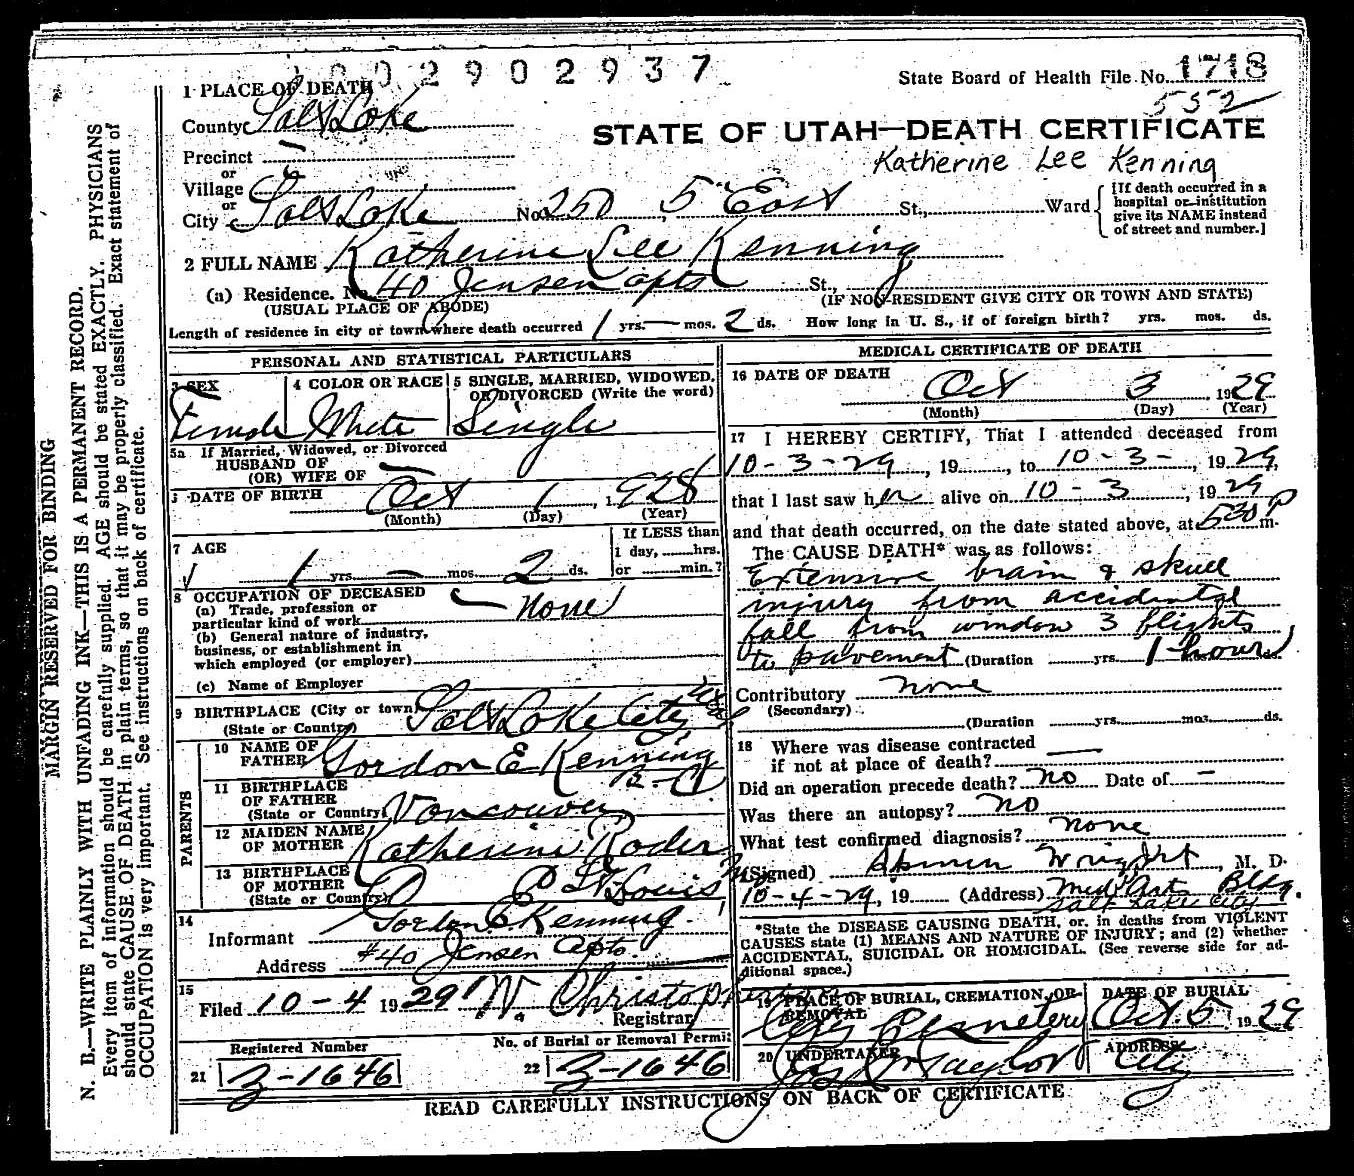 002902937
State Board of Health File No. 1718
552
1 PLACE OF DEATH
County Salt Lake
STATE OF UTAH—DEATH CERTIFICATE
Katherine Lee Kenning
Precinct —
or
Village
or
City Salt Lake No. 250 5" East St., Ward
[If death occurred in a
hospital or institution
give its NAME instead
of street and number.]
2 FULL NAME Katherine Lee Kenning
(a) Residence. No. 40 Jensen Apts St.,
(USUAL PLACE OF ABODE) (IF NON-RESIDENT GIVE CITY OR TOWN AND STATE)
Length of residence in city or town where death occurred 1 yrs. — mos. 2 ds. How long in U. S., if of foreign birth? yrs. mos. ds.
PERSONAL AND STATISTICAL PARTICULARS
3 SEX
Female
4 COLOR OR RACE
White
5 SINGLE, MARRIED, WIDOWED,
OR DIVORCED (Write the word)
Single
5a If Married, Widowed, or Divorced
HUSBAND OF
(OR) WIFE OF —
DATE OF BIRTH Oct 1, 1928
(Month) (Day) (Year)
7 AGE
1 yrs. — mos. 2 ds.
If LESS than
1 day, hrs.
or min.?
8 OCCUPATION OF DECEASED
(a) Trade, profession or
particular kind of work none
(b) General nature of industry,
business, or establishment in
which employed (or employer)
(c) Name of Employer
9 BIRTHPLACE (City or town) Salt Lake City
(State or Country)
PARENTS
10 NAME OF
FATHER Gordon E Kenning
11 BIRTHPLACE
OF FATHER
(State or Country) Vancouver B.C.
12 MAIDEN NAME
OF MOTHER Katherine Roder
13 BIRTHPLACE
OF MOTHER
(State or Country) St Louis Mo
14
Informant Gordon E Kenning.
Address #40 Jensen Apts.
15
Filed 10-4 1929 W. Christopherson
Registrar
Registered Number
21 3-1646
No. of Burial or Removal Permit
22 3-1646
MEDICAL CERTIFICATE OF DEATH
16 DATE OF DEATH
Oct 3 1929
(Month) (Day) (Year)
17 I HEREBY CERTIFY, That I attended deceased from
10-3-29, 19, to 10-3-, 1929,
that I last saw her alive on 10-3, 1929
and that death occurred, on the date stated above, at 530 P m.
The CAUSE DEATH* was as follows:
Extensive brain & skull
injury from accidental
fall from window 3 flights
to pavement (Duration yrs. 1 hour ds.
Contributory none
(Secondary)
(Duration yrs. mos. ds.
18 Where was disease contracted
if not at place of death? —
Did an operation precede death? no Date of —
Was there an autopsy? no
What test confirmed diagnosis? none
(Signed) Wright, M. D.
10-4-29, 19 (Address) Med Arts Bldg.
Salt Lake City
*State the DISEASE CAUSING DEATH, or, in deaths from VIOLENT
CAUSES state (1) MEANS AND NATURE OF INJURY; and (2) whether
ACCIDENTAL, SUICIDAL OR HOMICIDAL. (See reverse side for additional space.)
19 PLACE OF BURIAL, CREMATION, OR
REMOVAL
City Cemetery
DATE OF BURIAL
Oct 5, 1929
20 UNDERTAKER
Taylor
ADDRESS
City
READ CAREFULLY INSTRUCTIONS ON BACK OF CERTIFICATE
MARGIN RESERVED FOR BINDING
N. B.—WRITE PLAINLY WITH UNFADING INK—THIS IS A PERMANENT RECORD.
Every item of information should be carefully supplied. AGE should be stated EXACTLY. PHYSICIANS
should state CAUSE OF DEATH in plain terms, so that it may be properly classified. Exact statement of
OCCUPATION is very important. See instructions on back of certificate.